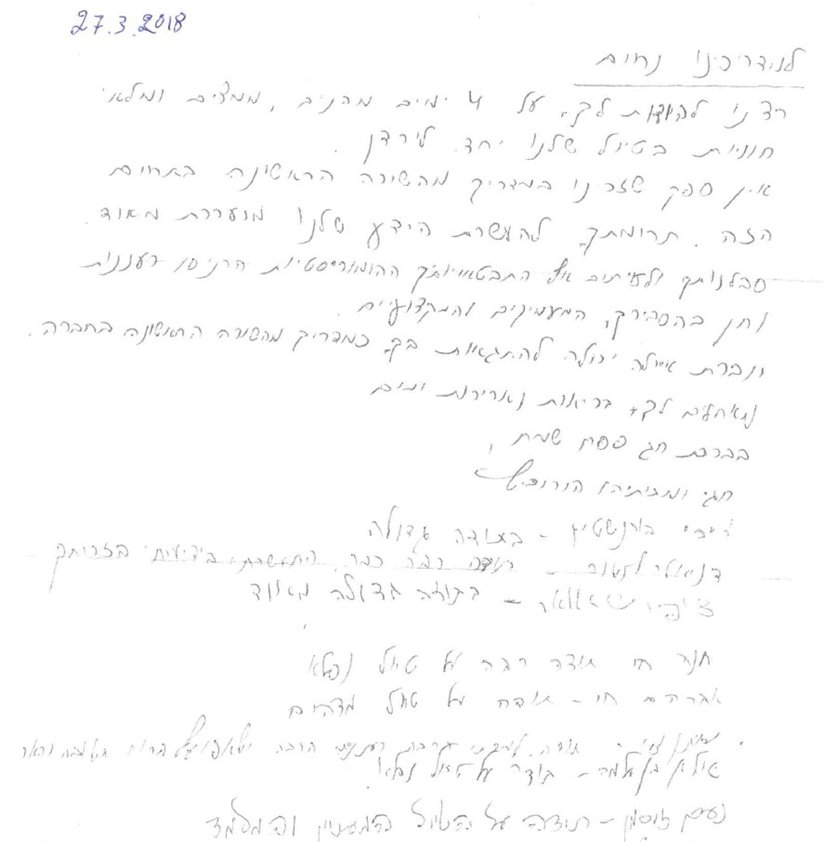 27.3.2018
למדריכינו נחום
רצינו להודות לך, על 4 ימים מהנים, ממצים ומלאי
חוויות בטיול שלנו יחד לירדן.
אין ספק שזכינו במדריך מהשורה הראשונה בתחום
הזה. תרומתך להעשרת הידע שלנו מוערכת מאוד.
סבלנותך ולעיתים אף התבטאויותיך ההומוריסטיות הכניסו רעננות
וחן בהסבריך, המעמיקים והמקצועיים.
וחברת איילה יכולה להתגאות בך, כמדריך מהשורה הראשונה בחברה.
מאחלים לך בריאות ואריכות ימים
בברכת חג פסח שמח,
חגי ומתיתיהו הורוביץ
ברנשטיין - בתודה גדולה
דניאלה - תודה רבה כבר התעשרתי בידיעות בזכותך
ציפי - בתודה גדולה מאוד
חנה חי תודה רבה על טיול נפלא
אברהם חי - תודה על טיול מדהים
תודה הרבה
אילן בן שלמה - תודה על טיול נפלא
נעים זוסמן - תודה על הטיול המעניין והמלמד